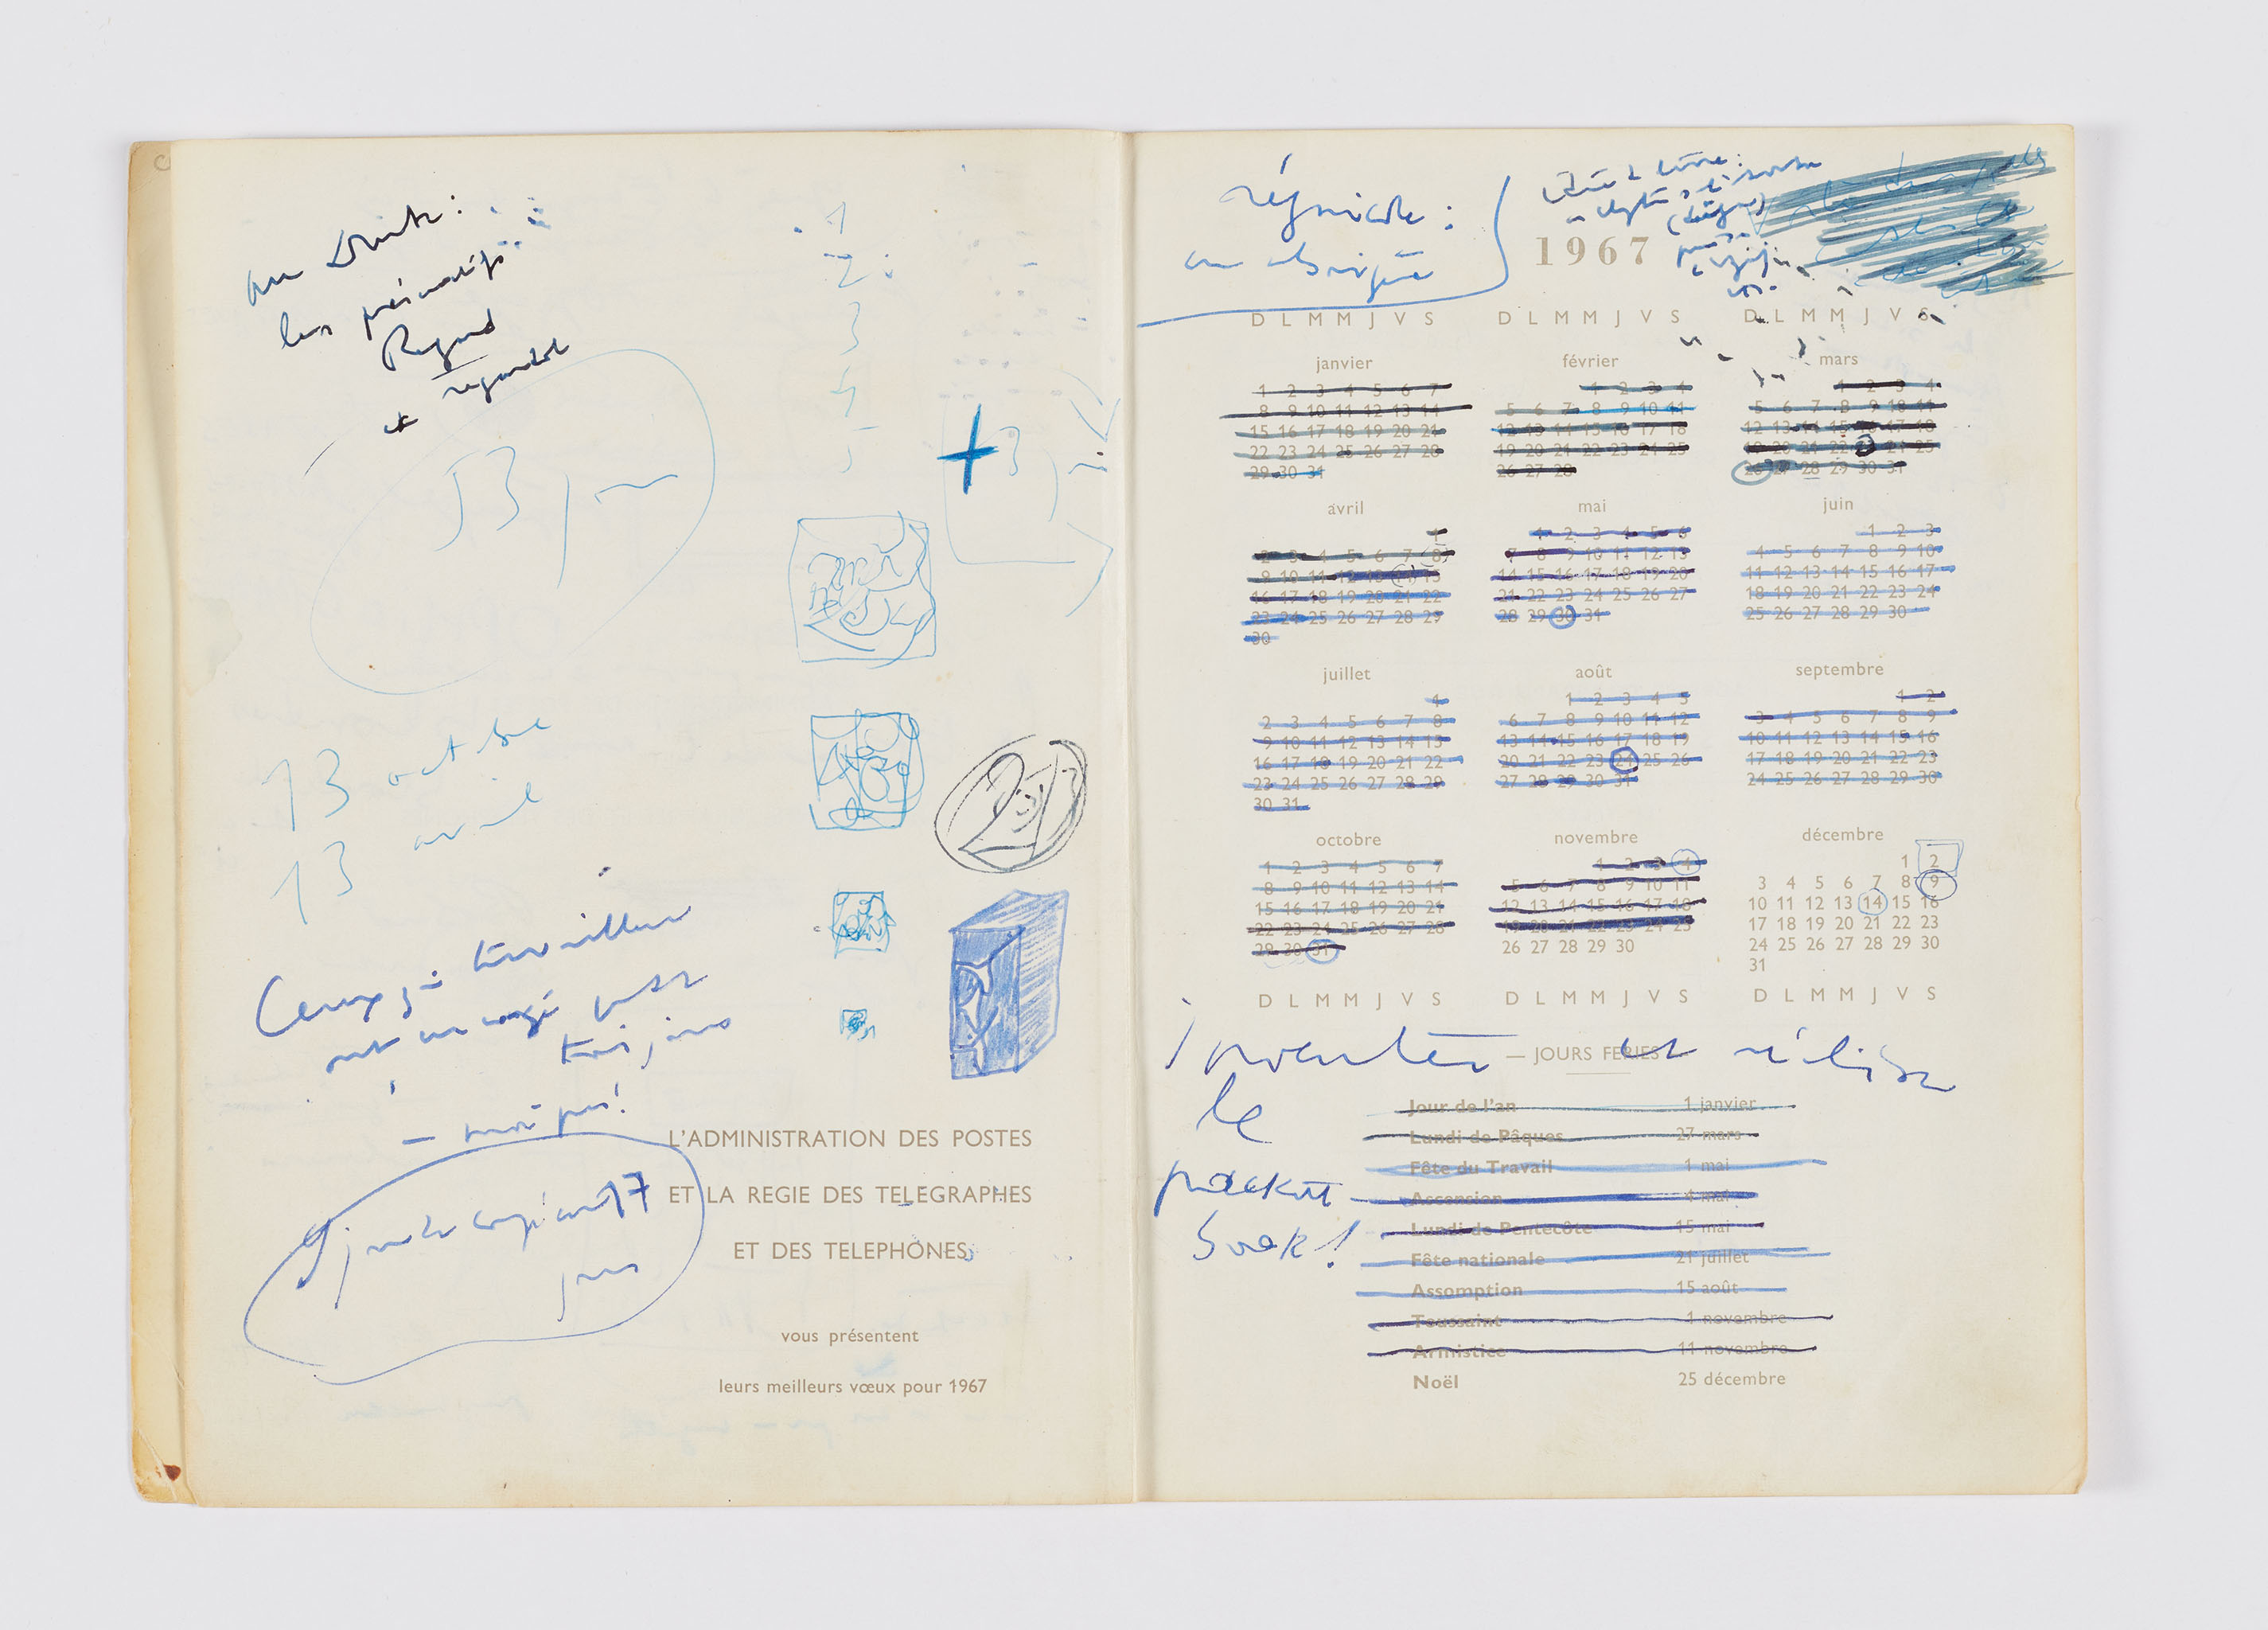 au Droits :
les
Regard
et regardé
53 jours
13 octobre
13 avril
Ceux qui travaillent
ont un congé
trois jours
– moi pas !
jours
1
2
3
4
5
+ 3
L'ADMINISTRATION DES POSTES
ET LA REGIE DES TELEGRAPHES
ET DES TELEPHONES
vous présentent
leurs meilleurs vœux pour 1967
régnicole :
1967
D L M M J V S D L M M J V S D L M M J V S
janvier février mars
1 2 3 4 5 6 7 1 2 3 4 1 2 3 4
8 9 10 11 12 13 14 5 6 7 8 9 10 11 5 6 7 8 9 10 11
15 16 17 18 19 20 21 12 13 14 15 16 17 18 12 13 14 15 16 17 18
22 23 24 25 26 27 28 19 20 21 22 23 24 25 19 20 21 22 23 24 25
29 30 31 26 27 28 26 27 28 29 30 31
avril mai juin
1 1 2 3 4 5 6 1 2 3
2 3 4 5 6 7 8 7 8 9 10 11 12 13 4 5 6 7 8 9 10
9 10 11 12 13 14 15 14 15 16 17 18 19 20 11 12 13 14 15 16 17
16 17 18 19 20 21 22 21 22 23 24 25 26 27 18 19 20 21 22 23 24
23 24 25 26 27 28 29 28 29 30 31 25 26 27 28 29 30
30
juillet août septembre
1 1 2 3 4 5 1 2
2 3 4 5 6 7 8 6 7 8 9 10 11 12 3 4 5 6 7 8 9
9 10 11 12 13 14 15 13 14 15 16 17 18 19 10 11 12 13 14 15 16
16 17 18 19 20 21 22 20 21 22 23 24 25 26 17 18 19 20 21 22 23
23 24 25 26 27 28 29 27 28 29 30 31 24 25 26 27 28 29 30
30 31
octobre novembre décembre
1 2 3 4 5 6 7 1 2 3 4 1 2
8 9 10 11 12 13 14 5 6 7 8 9 10 11 3 4 5 6 7 8 9
15 16 17 18 19 20 21 12 13 14 15 16 17 18 10 11 12 13 14 15 16
22 23 24 25 26 27 28 19 20 21 22 23 24 25 17 18 19 20 21 22 23
29 30 31 26 27 28 29 30 24 25 26 27 28 29 30
31
D L M M J V S D L M M J V S D L M M J V S
inventer et réaliser
— JOURS FERIES
le
pockett
book !
Jour de l'an 1 janvier
Lundi de Pâques 27 mars
Fête du Travail 1 mai
Ascension 4 mai
Lundi de Pentecôte 15 mai
Fête nationale 21 juillet
Assomption 15 août
Toussaint 1 novembre
Armistice 11 novembre
Noël 25 décembre